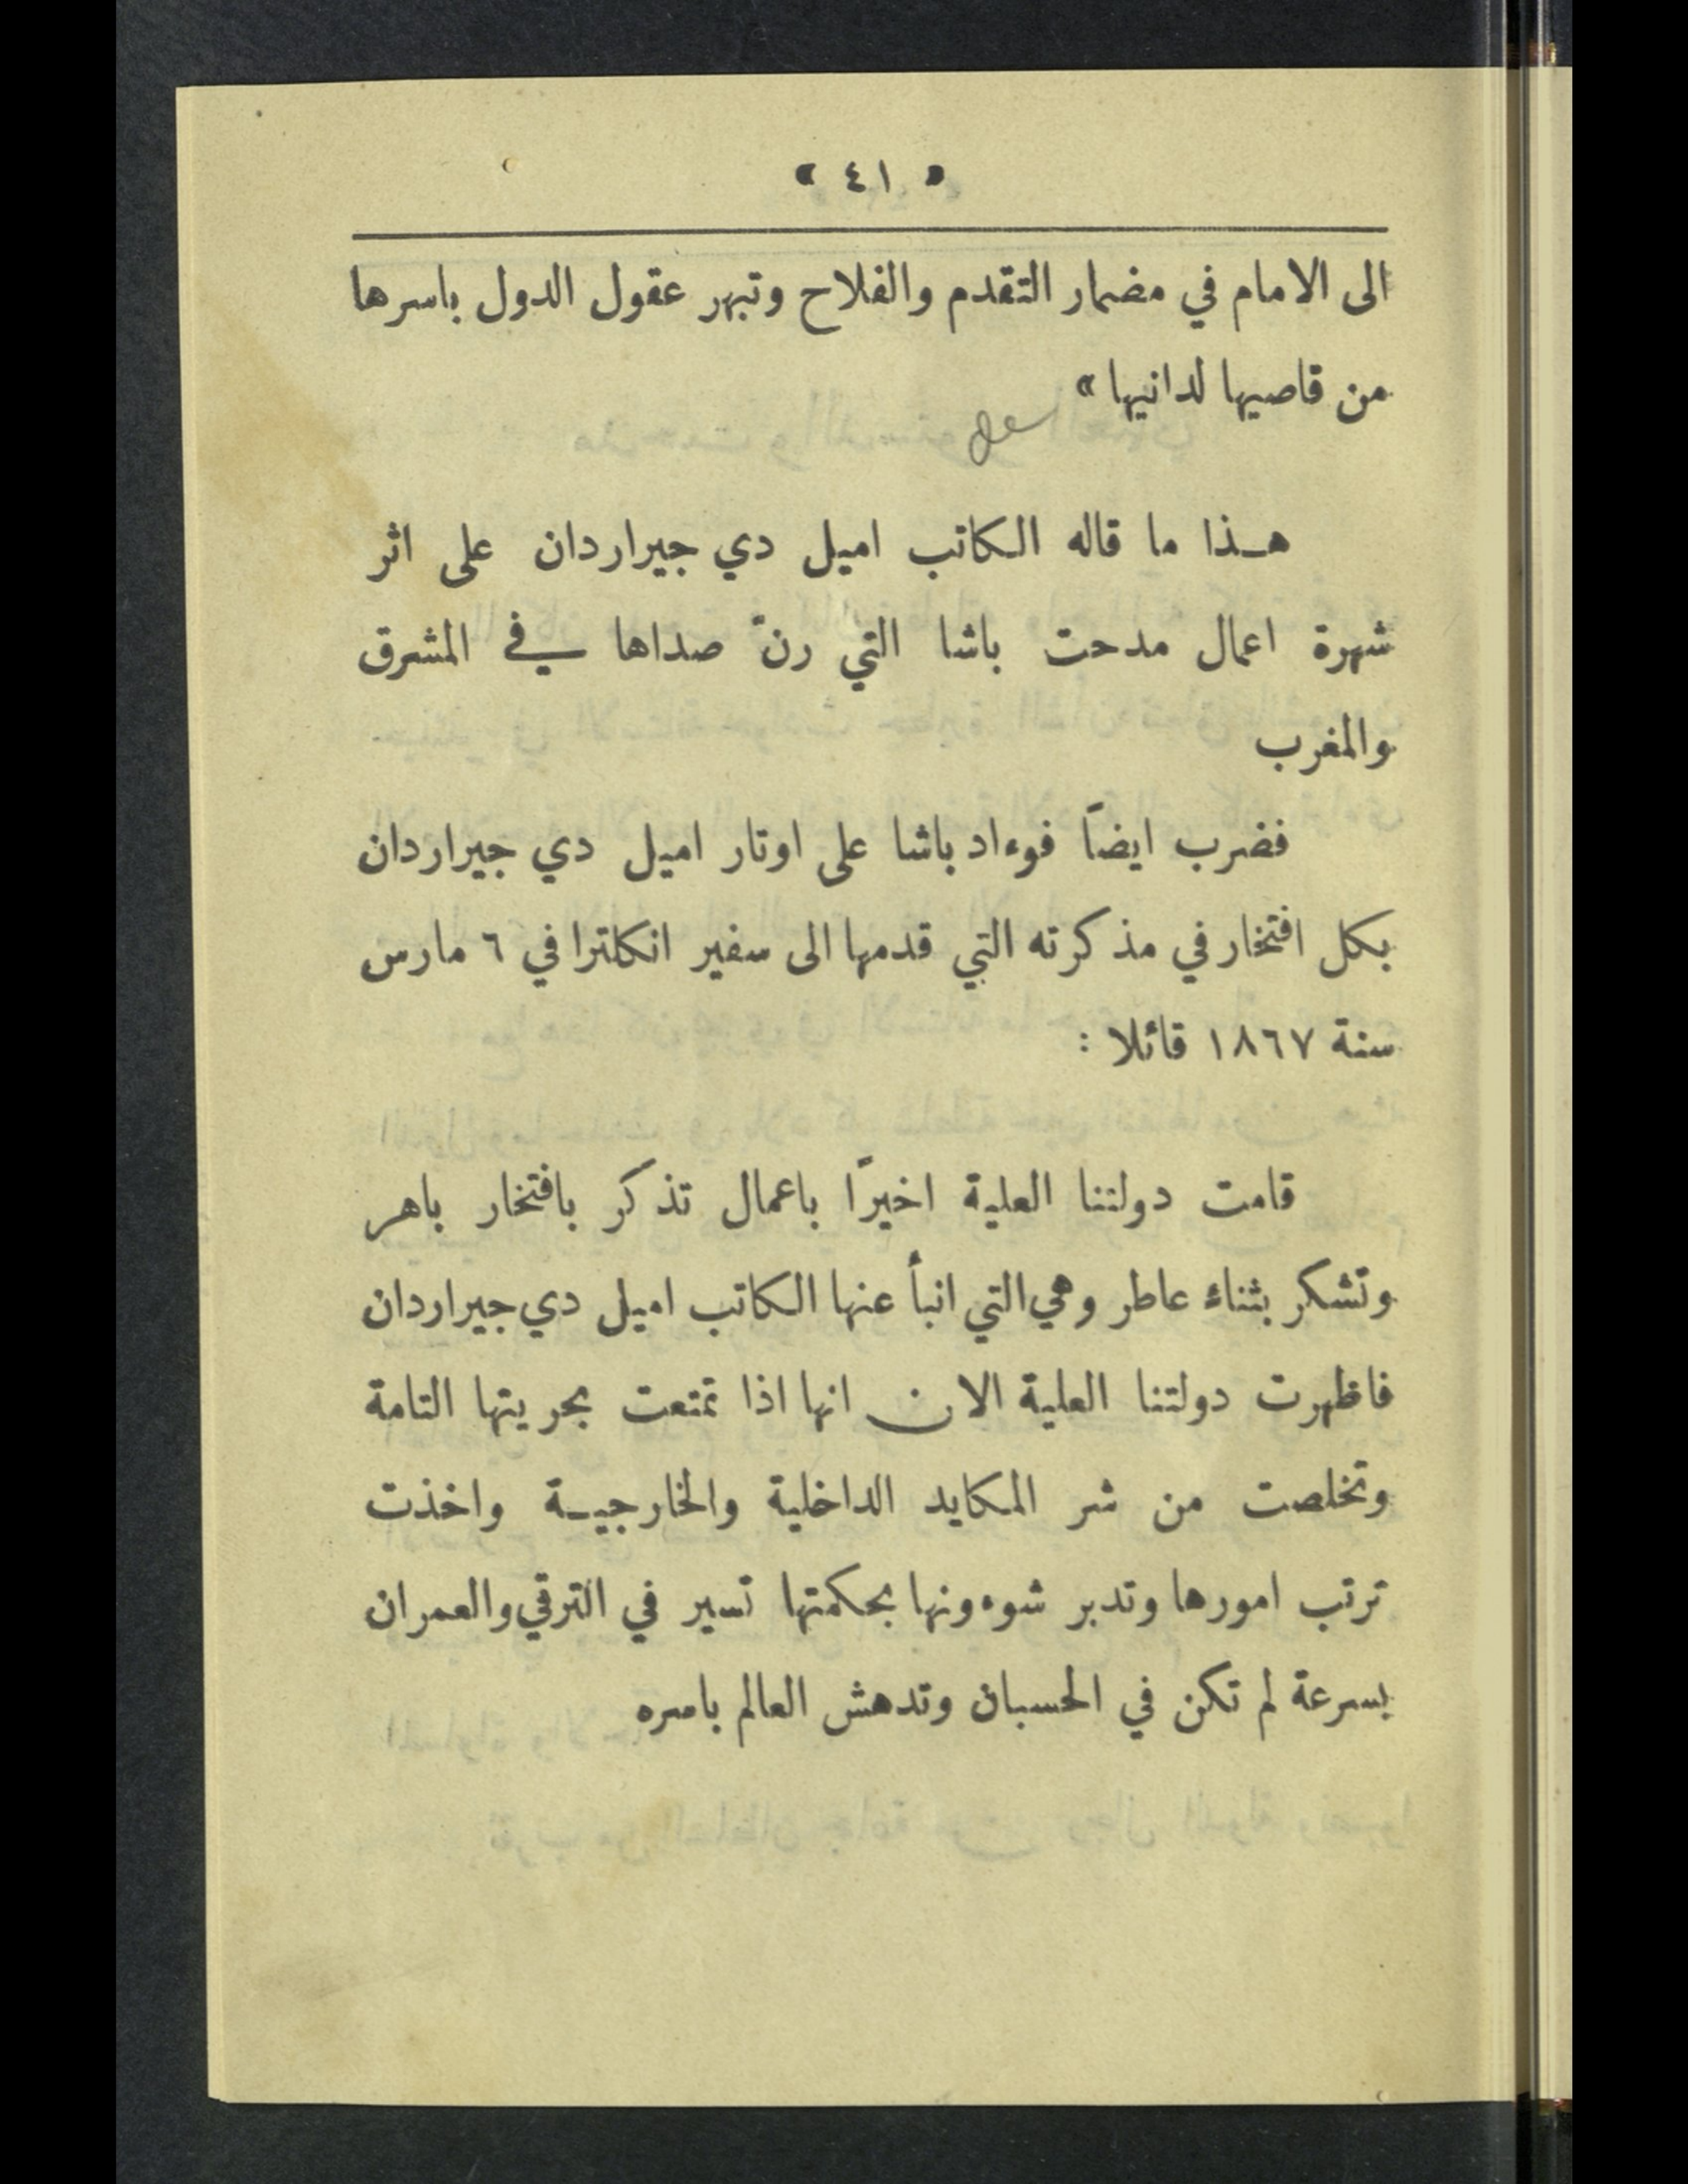 « ٤١ »
الى الامام في مضمار التقدم والفلاح وتبهر عقول الدول باسرها
من قاصيها لدانيها »
هـذا ما قاله الكاتب اميل دي جيراردان على اثر
شهرة اعمال مدحت باشا التي رنّ صداها في المشرق
والمغرب
فضرب ايضاً فوءاد باشا على اوتار اميل دي جيراردان
بكل افتخار في مذكرته التي قدمها الى سفير انكلترا في ٦ مارس
سنة ١٨٦٧ قائلا :
قامت دولتنا العلية اخيرًا باعمال تذكر بافتخار باهر
وتشكر بثناء عاطر وهي التي انبأ عنها الكاتب اميل دي جيراردان
فاظهرت دولتنا العلية الان انها اذا تمتعت بحريتها التامة
وتخلصت من شر المكايد الداخلية والخارجيـة واخذت
ترتب امورها وتدبر شوءونها بحكمتها تسير في الترقي والعمران
بسرعة لم تكن في الحسبان وتدهش العالم باسره